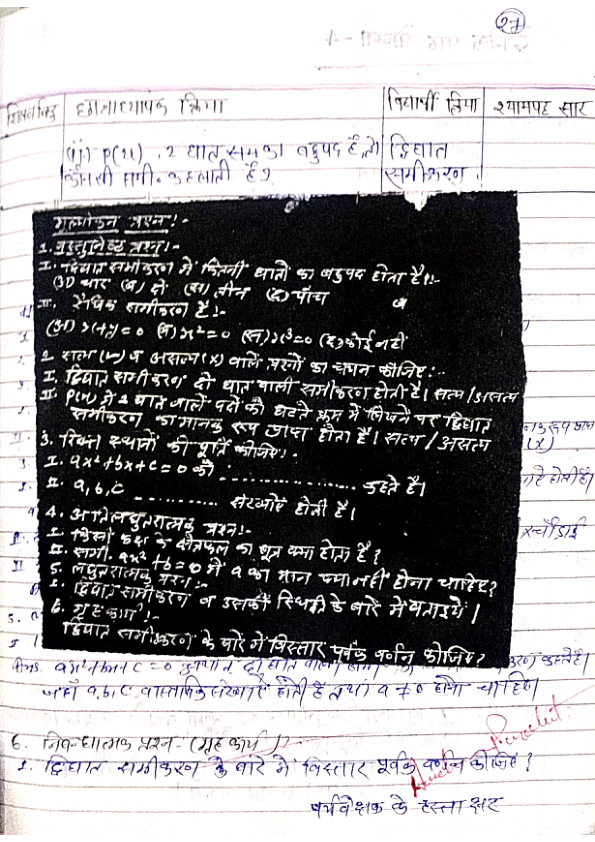 27
शिक्षण बिंदु | छात्राध्यापक क्रिया | विद्यार्थी क्रिया | श्यामपट्ट सार
(ii) P(x), 2 घात समका बहुपद है, तो | द्विघात
कौनसी समी. कहलाती है? | समीकरण
मूल्यांकन प्रश्न:-
1. वस्तुनिष्ठ प्रश्न:-
I. द्विघात समीकरण में कितनी घातों का बहुपद होता है:-
(अ) चार (ब) दो (स) तीन (द) पांच ब
II. रैखिक समीकरण है:-
(अ) x+y=0 (ब) x²=0 (स) x³=0 (द) कोई नहीं
2. सत्य (✓) व असत्य (x) वाले प्रश्नों का चयन कीजिए:-
I. द्विघात समीकरण दो घात वाली समीकरण होती है। सत्य/असत्य
II. P(x) में 2 घात वाले पदों को घटते क्रम में लिखने पर द्विघात
समीकरण का मानक रूप प्राप्त होता है। सत्य/असत्य
(x)
3. रिक्त स्थानों की पूर्ति कीजिए:-
I. ax²+bx+c=0 को .................... कहते है।
II. a, b, c ............ संख्याएं होती है।
4. अतिलघुतरात्मक प्रश्न:-
I. किसी कक्ष के क्षेत्रफल का सूत्र क्या होता है?
II. समी. ax²+b=0 में a का मान क्या नहीं होना चाहिए?
5. लघुतरात्मक प्रश्न:-
I. द्विघात समीकरण व उसकी स्थिति के बारे में बताइये।
6. गृहकार्य:-
द्विघात समीकरण के बारे में विस्तार पूर्वक वर्णन कीजिए?
Ans. ax²+bx+c=0 कहते है।
जहाँ a, b, c वास्तविक संख्याएं होती है तथा a ≠ 0 होना चाहिए।
6. निबन्धात्मक प्रश्न - (गृह कार्य):-
1. द्विघात समीकरण के बारे में विस्तार पूर्वक वर्णन कीजिए?
पर्यवेक्षक के हस्ताक्षर